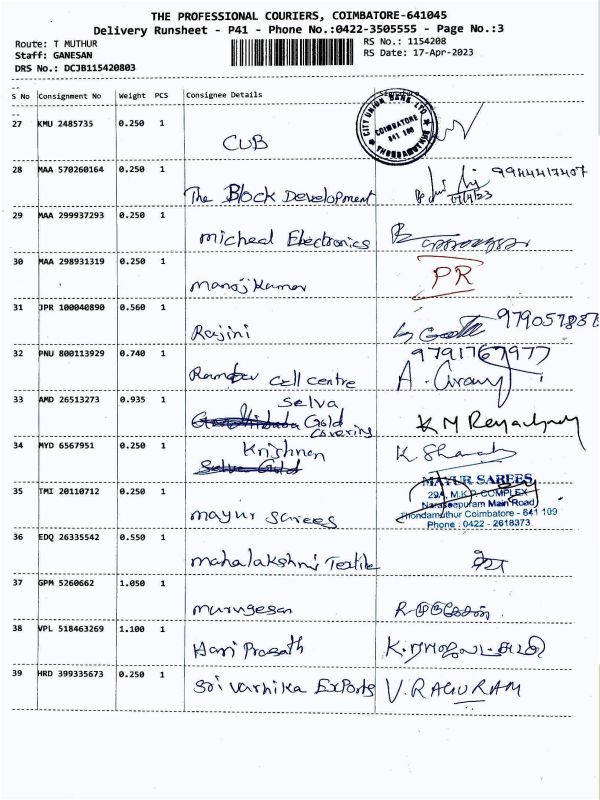 THE PROFESSIONAL COURIERS, COIMBATORE-641045
Delivery Runsheet - P41 - Phone No.:0422-3505555 - Page No.:3
Route: T MUTHUR RS No.: 1154208
Staff: GANESAN RS Date: 17-Apr-2023
DRS No.: DCJB115420803
S No Consignment No Weight PCS Consignee Details
27 KMU 2485735 0.250 1
CUB
CITY UNION BANK LTD
COIMBATORE
641 109
THONDAMUTHUR
28 MAA 570260164 0.250 1
The Block Development
29 MAA 299937293 0.250 1
micheal Electronics
30 MAA 298931319 0.250 1
manojkumar PR
31 JPR 100040890 0.560 1
Rajini
32 PNU 800113929 0.740 1 9791767977
cell centre
33 AMD 26513273 0.935 1 Selva
Gold
covering
34 MYD 6567951 0.250 1 Krishnan
Selva Gold
35 TMI 20110712 0.250 1
mayur sarees
MAYUR SAREES
29A, M.K.P. COMPLEX
Naraseepuram Main Road
Thondamuthur Coimbatore - 641 109
Phone : 0422 - 2618373
36 EDQ 26335542 0.550 1
mahalakshmi Textile
37 GPM 5260662 1.050 1
murugesan R. முருகேசன்
38 VPL 518463269 1.100 1
Hari Prasath
39 HRD 399335673 0.250 1
Sri varhika Exports V. RAGURAM